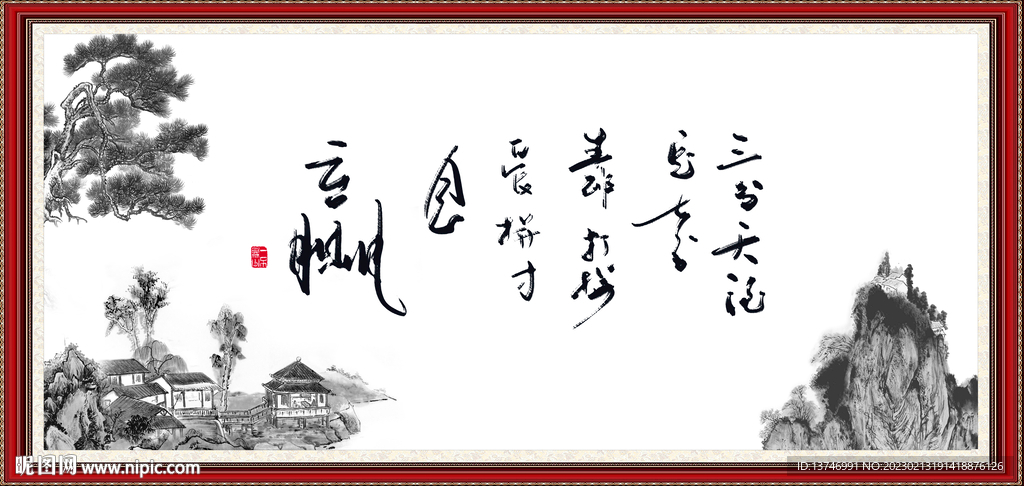 三分天注
定七分
靠打拼
爱拼才
会
赢
昵图网 www.nipic.com
ID:13746991 NO:20230213191418876126